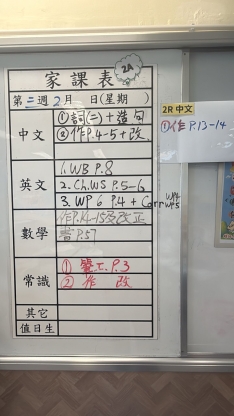 家課表
2A
第三週2月 日(星期 )
中文
①詞(二)+造句
②作P.4-5+改
英文
1. WB P.8
2. Ch.WS P.5-6
3. WP 6 P.4 + Corr WP4
WP5
數學
作P.14-15及改正
書P.57
常識
① 工P.3
② 作 改
其它
值日生
2R中文
①作P.13-14